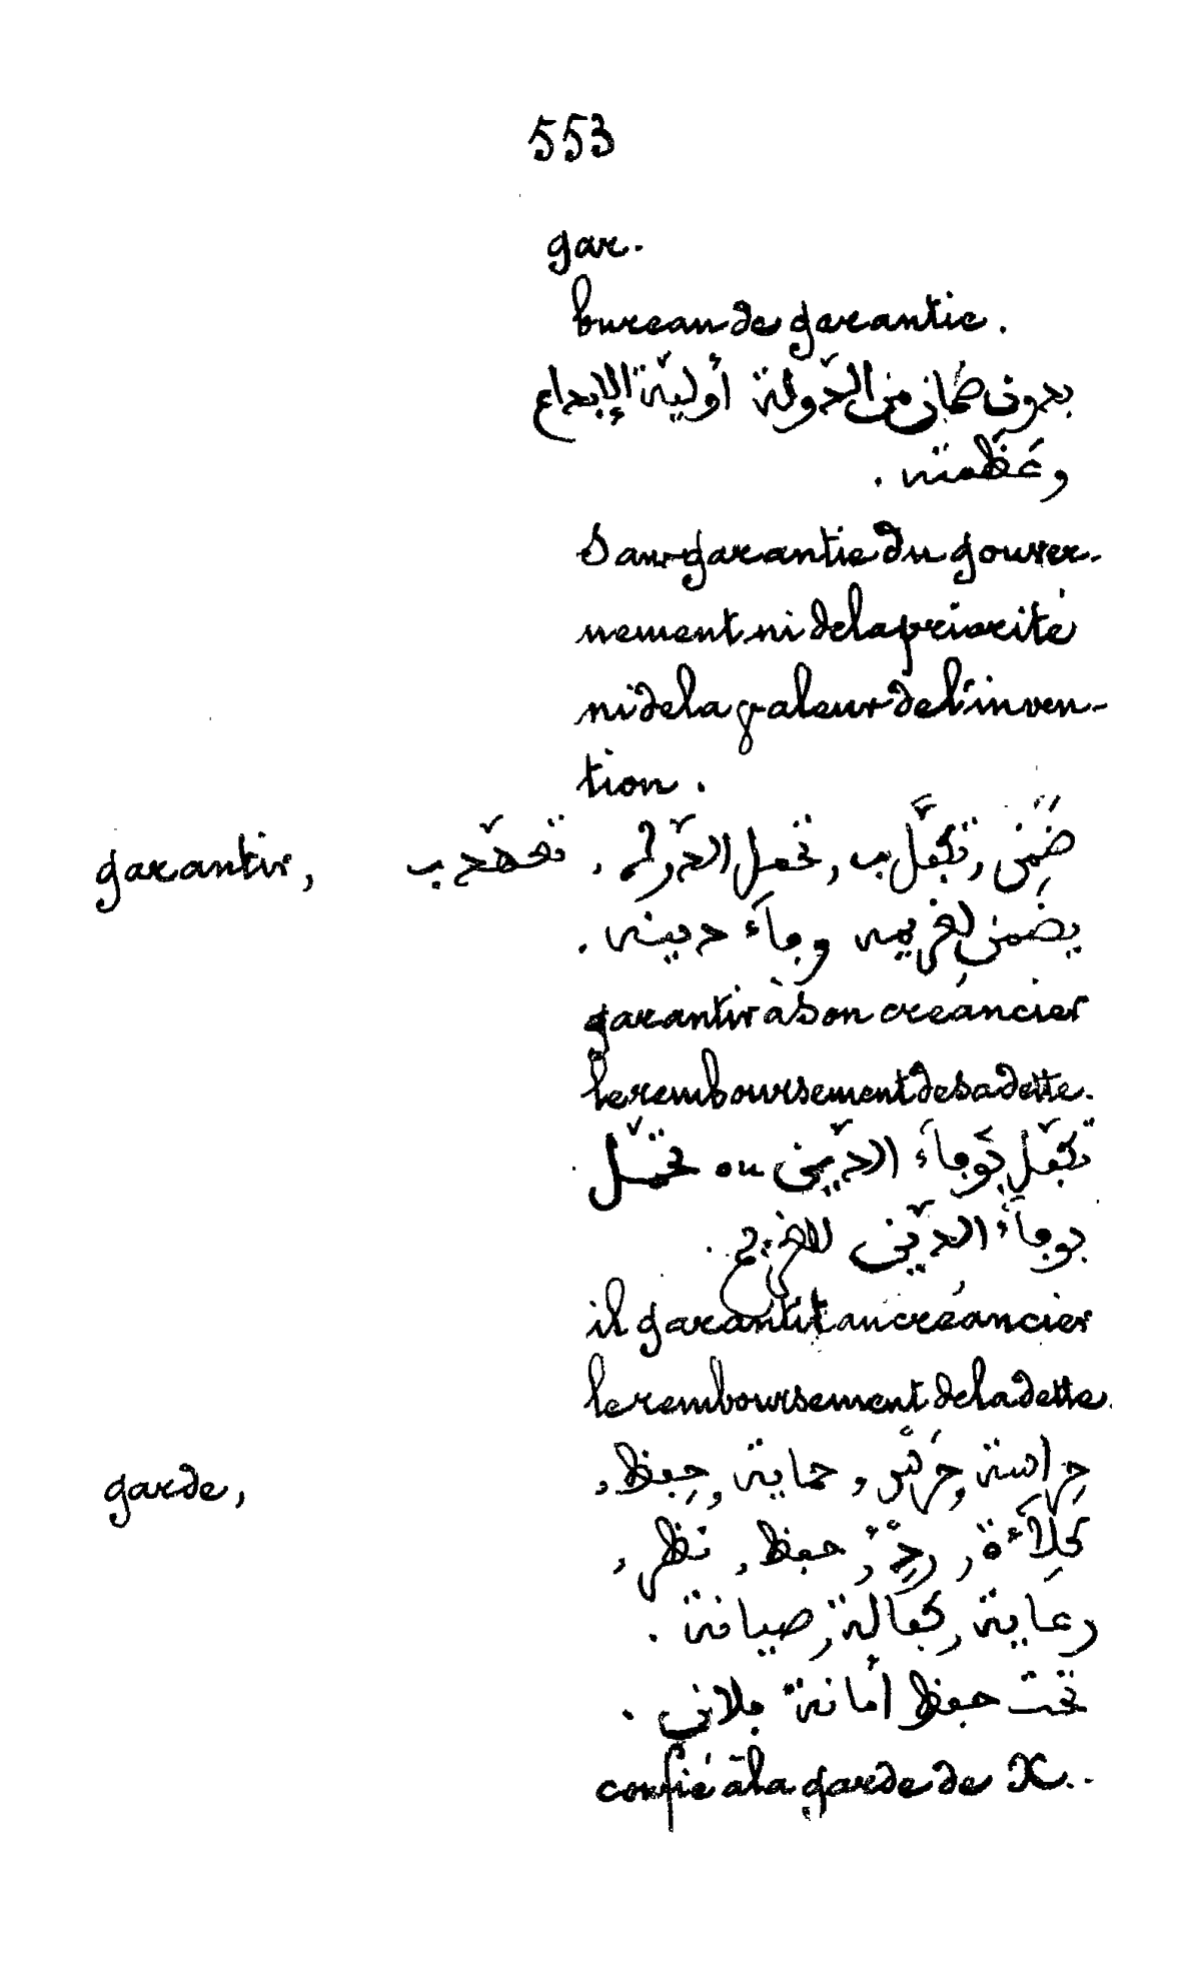 553
gar.
bureau de garantie.
بدون ضمان من الدّولة أوليّة الإبداع
وعَظمته .
Sans garantie du gouver-
nement, ni de la priorité
ni de la valeur de l'inven-
tion .
garantir, ضَمِنَ, تكڢَّل ب, تحمل الدّرك, تعهّد ب
يضمن لِغريمه وڢاَء دينه .
garantir à son créancier
le remboursement de sa dette.
تكڢّل بَوڢاَء الدّين ou تحمّل
بوڢاَء الدّين للغريم .
il garantit au créancier
le remboursement de la dette.
garde, حِراسة, حَرَسٌ, حماية, حِڢظ,
كِلاَءة, رِدْءٌ, حڢظ, نظر,
رعاية, كڢالة, صيانة .
تحت حڢظ أمانة ڢلان .
confié à la garde de X..